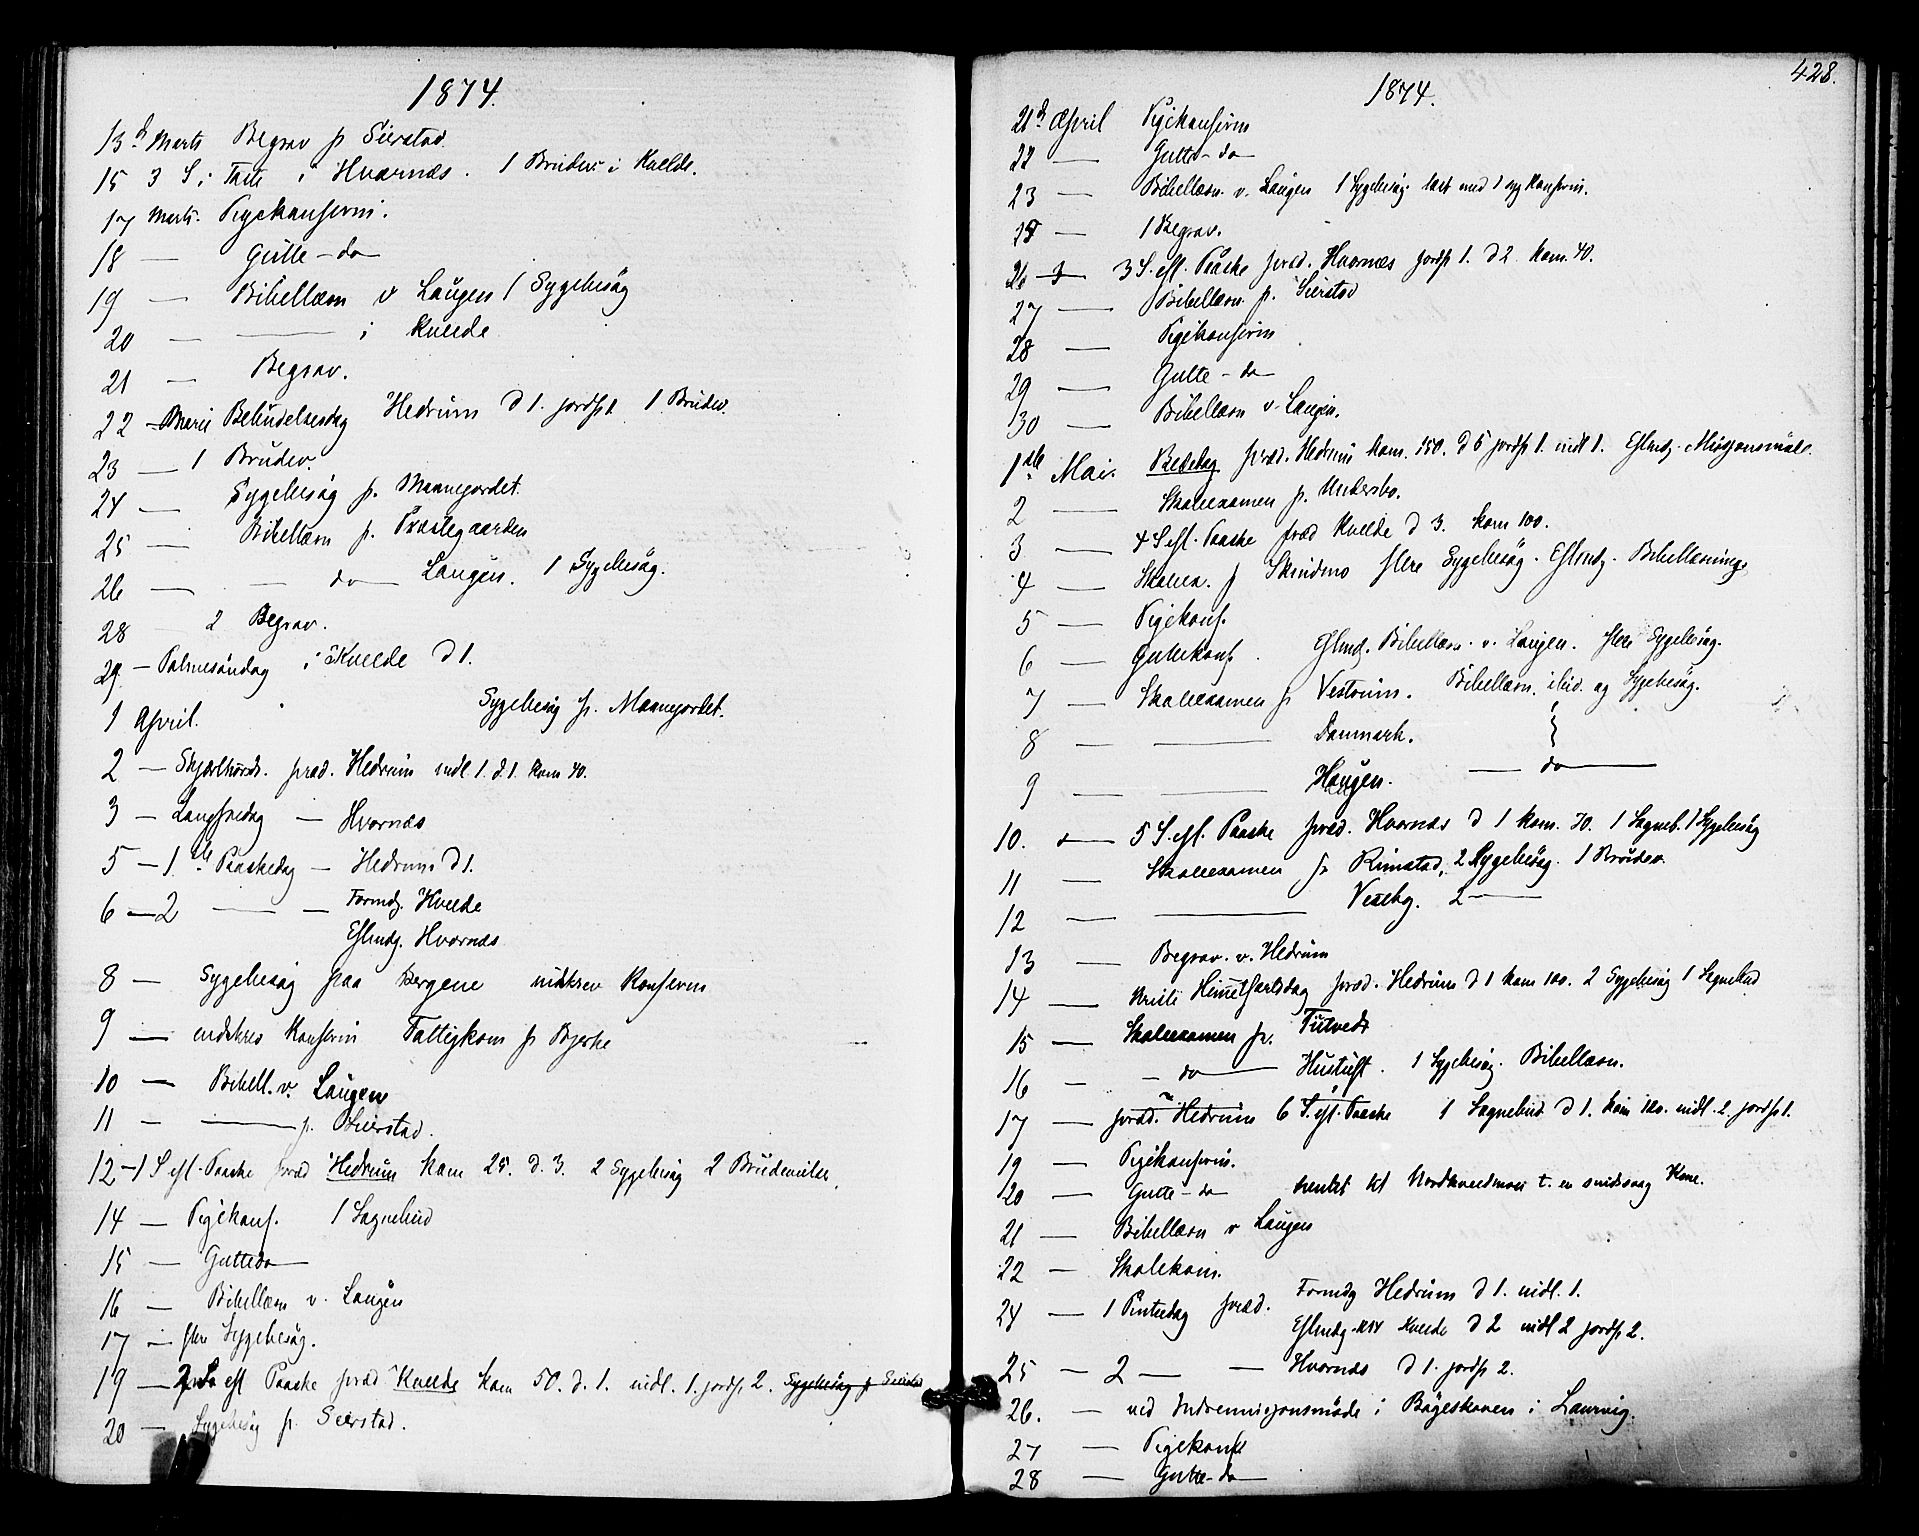 1874.
13d Marts Begrav p Sierstad.
15 3 S. i Faste i Hvarnæs. 1 Brudev. i Kvelde.
17 Marts. Pigekonfirm.
18 — Gutte - do
19 — Bibellæsn v Laugen 1 Sygebesøg
20 — — i Kvelde
21 — Begrav.
22 — Marie Bebudelsesdag Hedrum D 1. jordf 1. 1 Brudev.
23 — 1 Brudev.
24 — Sygebesøg p.
25 — Bibellæsn p. Præstegaarden
26 — — do — Laugen. 1 Sygebesøg.
28 2 Begrav.
29 — Palmesøndag i Kvelde D 1.
1 April. Sygebesøg p.
2 — Skjærthorsd. præd. Hedrum indl 1. d. 1. kom 40.
3 — Langfredag — Hvarnæs
5 — 1ste Paaskedag — Hedrum D 1.
6 — 2 — — Formdg. Kvelde
Eftmdg. Hvarnæs
8 — Sygebesøg paa Bergene indskrev Konfirm
9 — indskrev Konfirm Fattigkom p Bjerke
10 — Bibell. v. Laugen
11 — — p. Sierstad.
12 — 1 S eft. Paaske præd Hedrum kom 25. D. 3. 2 Sygebesøg 2 Brudevielse.
14 — Pigekonf. 1 Sognebud
15 — Guttedo —
16 — Bibellæsn v. Laugen
17 — flere Sygebesøg.
19 — 2 S eft Paaske præd Kvelde kom 50. d. 1. indl. 1. jordf. 2. Sygebesøg p Sierstad
20 — Sygebesøg p. Sierstad.
428.
1874.
21d April Pigekonfirm
22 — Gutte - do
23 — Bibellæsn. v. Laugen 1 Sygebesøg. læst med 1 syg konfirm.
25 — 1 Begrav.
26 — 3 S. eft. Paaske præd. Hvarnæs jordf 1. d 2 kom. 40.
27 — Bibellæsn. p. Sierstad
28 — Pigekonfirm
29 — Gutte - do
30 — Bibellæsn v. Laugen.
1ste Mai. Bededag præd. Hedrum kom. 150. d 5 jordf 1. indl 1. Eftmdg. Missjonsmøde.
2 — Skolexamen p. Undersbo.
3 — 4 S eft. Paaske præd Kvelde d 3. kom 100.
4 — Skolex. p Skindmo flere Sygebesøg. Eftmdg. Bibellæsning
5 — Pigekonf.
6 — Guttekonf. Eftmdg. Bibellæsn. v. Laugen. flere Sygebesøg.
7 — Skolexamen p Vestrum. Bibellæsn. ibid. og Sygebesøg.
8 — — Danmark.
9 — — Haugen. — do —
10. — 5 S. eft. Paaske præd. Hvarnæs d 1 kom. 70. 1 Sogneb. 1 Sygebesøg
11 — Skolexamen p. Rimstad, 2 Sygebesøg. 1 Brudev.
12 — — Vestby. 2 —
13 — Begrav. v. Hedrum
14 — Kristi Himmelfartsdag præd. Hedrum d 1 kom 100. 2 Sygebesøg 1 Sognebud
15 — Skolexamen p. Tutvedt
16 — — do — Hustuft. 1 Sygebesøg. Bibellæsn.
17 — præd. Hedrum 6 S. eft. Paaske 1 Sognebud d 1. kom 120. indl. 2. jordf 1.
19 — Pigekonfirm.
20 — Gutte - do hentet til t. en sindssvag Kone.
21 — Bibellæsn v Laugen
22 — Skolekom.
24 — 1 Pintsedag præd. Formdg Hedrum d 1. indl. 1.
Eftmdg. Kvelde d 2 indl 2 jordf 2.
25 — 2 — — Hvarnæs d 1. jordf 2.
26. — ved Indremissjonsmøde i Bøgeskoven i Laurvig.
27 — Pigekonf
28 — Gutte - do